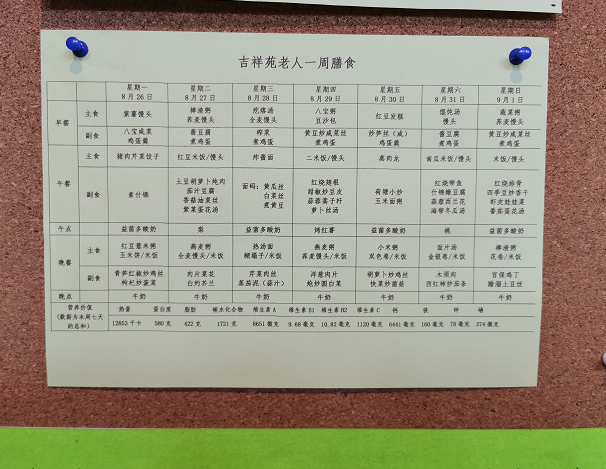 吉祥苑老人一周膳食
星期一 星期二 星期三 星期四 星期五 星期六 星期日
8月26日 8月27日 8月28日 8月29日 8月30日 8月31日 9月1日
早餐
主食 紫薯馒头 棒渣粥 荞麦馒头 疙瘩汤 全麦馒头 八宝粥 豆沙包 红豆发糕 馄饨汤 馒头 蔬菜粥 荞麦馒头
副食 八宝咸菜 鸡蛋羹 酱豆腐 煮鸡蛋 榨菜 煮鸡蛋 黄豆炒咸菜丝 煮鸡蛋 炒笋丝(咸) 鸡蛋羹 酱豆腐 煮鸡蛋 黄豆炒咸菜丝 煮鸡蛋
午餐
主食 猪肉芹菜饺子 红豆米饭/馒头 炸酱面 二米饭/馒头 蒸肉龙 南瓜米饭/馒头 米饭/馒头
副食 素什锦 土豆胡萝卜炖肉 茄汁豆腐 香菇油菜丝 紫菜蛋花汤 面码:黄瓜丝 白菜丝 煮黄豆 红烧翅根 甜椒炒豆皮 蒜蓉蒿子杆 萝卜丝汤 荷塘小炒 玉米面粥 红烧带鱼 什锦嫩豆腐 蒜蓉西兰花 海带冬瓜汤 红烧排骨 四季豆炒香干 虾皮娃娃菜 番茄蛋花汤
午点 益菌多酸奶 梨 益菌多酸奶 烤红薯 益菌多酸奶 桃 益菌多酸奶
晚餐
主食 红豆薏米粥 玉米饼/米饭 燕麦粥 全麦馒头/米饭 热汤面 糊塌子/米饭 燕麦粥 荞麦馒头/米饭 小米粥 双色卷/米饭 面片汤 金银卷/米饭 棒渣粥 花卷/米饭
副食 青笋红椒炒鸡丝 枸杞炒菠菜 肉片菜花 白灼芥兰 芹菜肉丝 蒸茄泥(蒜汁) 洋葱肉片 炝炒圆白菜 胡萝卜炒鸡丝 快菜炒菌菇 木须肉 西红柿炒茄条 宫保鸡丁 醋溜土豆丝
晚点 牛奶 牛奶 牛奶 牛奶 牛奶 牛奶 牛奶
营养价值 (数据为本周七天的总和)
热量 蛋白质 脂肪 碳水化合物 维生素A 维生素B1 维生素B2 维生素C 钙 铁 锌 硒
12853千卡 580克 422克 1721克 8651微克 9.68毫克 10.82毫克 1120毫克 6441毫克 160毫克 78毫克 374微克